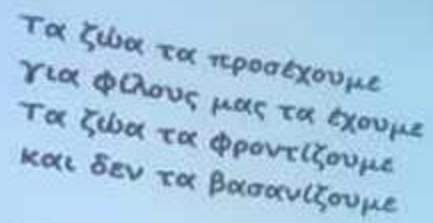 Τα ζώα τα προσέχουμε
για φίλους μας τα έχουμε
Τα ζώα τα φροντίζουμε
και δεν τα βασανίζουμε